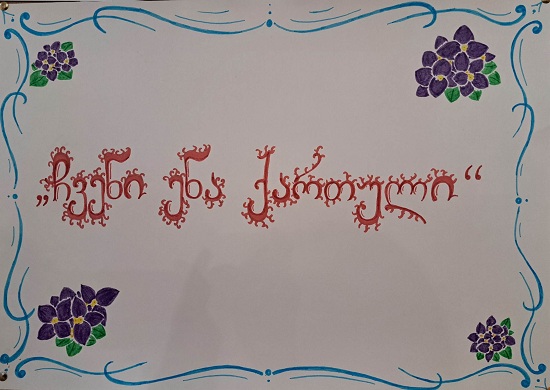 „ჩვენი ენა ქართული“